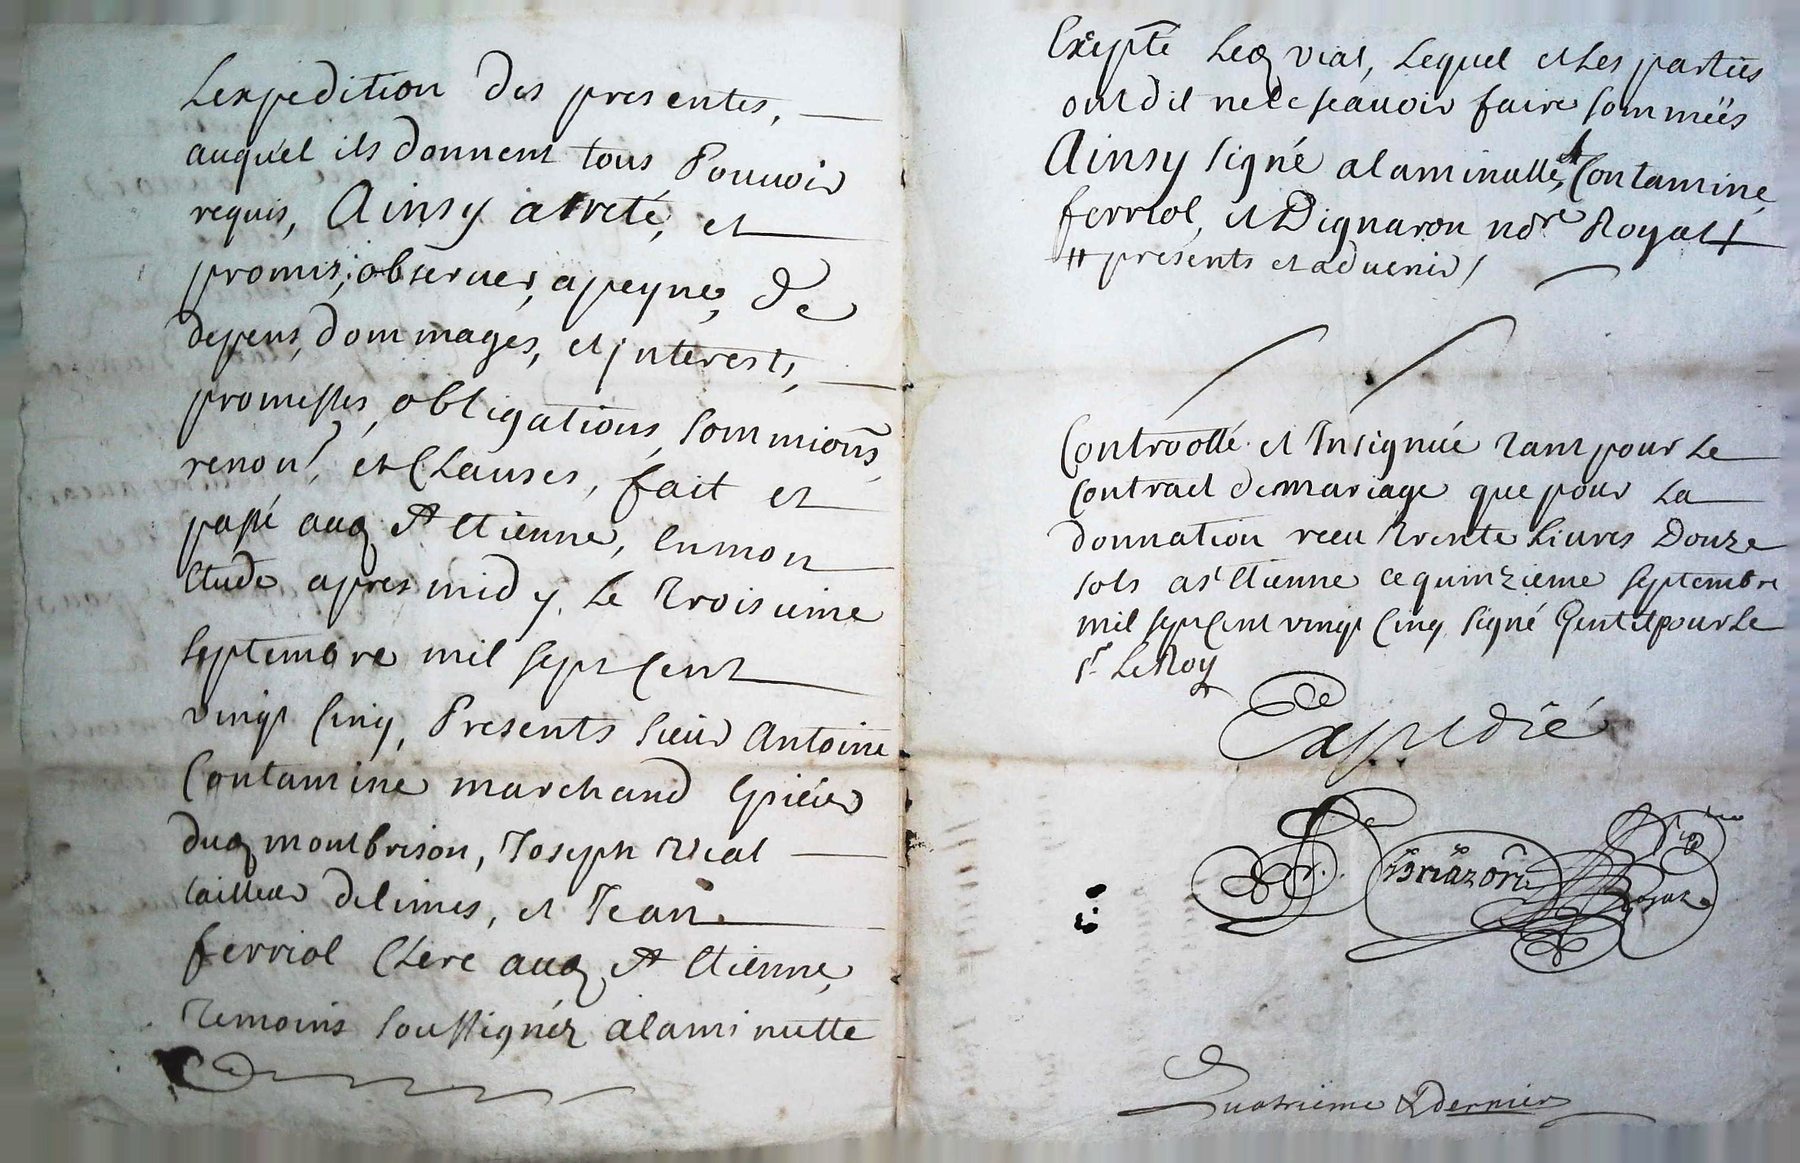 Lexpedition des presentes,
auquel ils donnent tous Pouvoir
requis, Ainsy arreté, et
promis, observer, apeyne, de
depens, dommages, et jnterests,
promesses, obligations, sommions,
renon?, et Clauses, fait et
passé audt St Etienne, En mon
Etude apres midy, le Troisieme
septembre mil sept Cent
vingt Cinq, Presents sieur Antoine
Contamine marchand Epicier
dudt montbrison, Joseph Vial
tailleur de limes, et Jean
ferriol Clerc audt St Etienne,
Temoins soussignéz a la minutte
Exepté Ledt vial, Lequel et Les parties
ont dit ne le scavoir faire sommées
Ainsy signé a la minutte, Contamine,
ferriol, et Dignaron nore Royal #
# presents et advenir /
Controollé et Insignué Tant pour Le
Contract de mariage que pour La
donnation receu Trente Livres Douze
sols a St Etienne ce quinzieme septembre
mil sept Cent vingt Cinq signé Gentil pour Le
Sr LeRoy
Expedié
Royal
Quatrieme & dernier